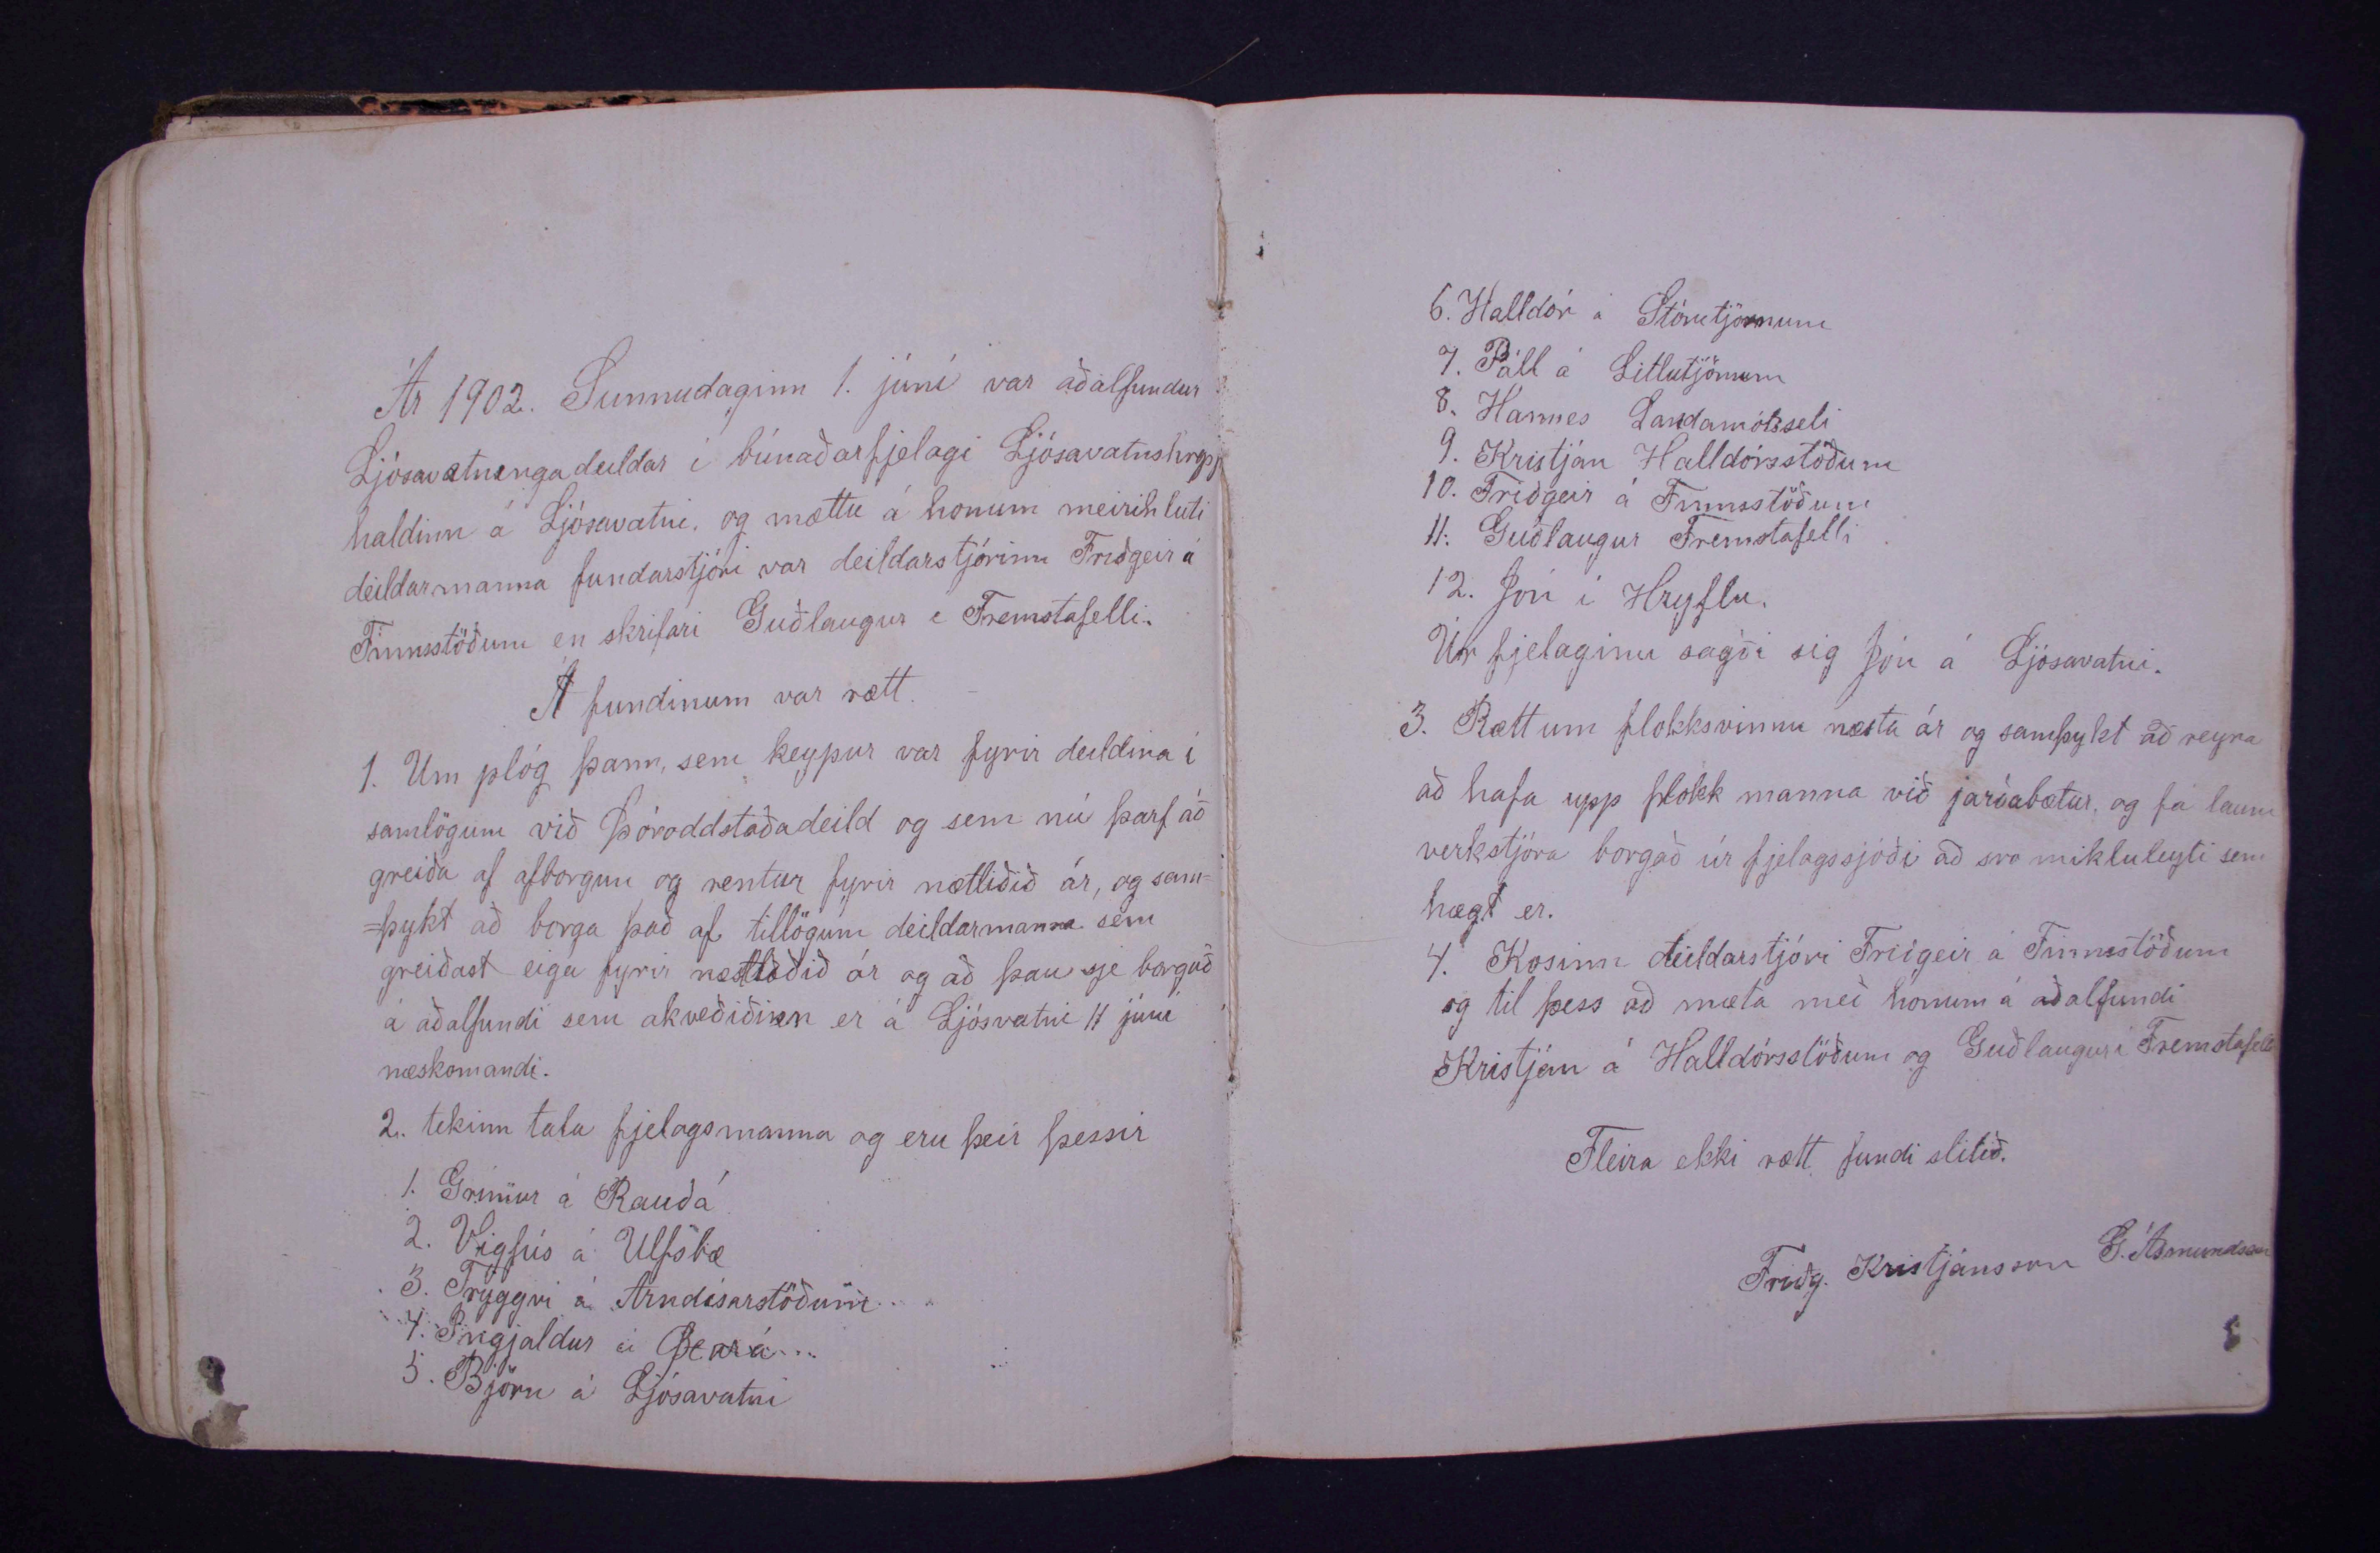 Ár 1902. Sunnudaginn 1. júní var aðalfundur
Ljósavatnsnga deildar í búnaðarfjelagi Ljósavatnshrepps
haldinn á Ljósavatni, og mættu á honum meirihluti
deildarmanna fundarstjóri var deildarstjórinn Friðgeir á
Finnsstöðum en skrifari Guðlaugur í Fremstafelli.
Á fundinum var rætt.
1. Um plóg þann, sem keyptur var fyrir deildina í
samlögum við Þóroddstaðadeild og sem nú þarf að
greiða af afborgun og rentur fyrir nætliðið ár, og sam=
=þykt að borga það af tillögum deildarmanna sem
greiðast eiga fyrir næstliðið ár og að þau sje borguð
á aðalfundi sem akveðiðinn er á Ljósvatni 11 júní
næskomandi.
2. tekinn tala fjelagsmanna og eru þeir þessir
1. Grímur á Rauðá
2. Vigfús á Ulfsbæ
3. Tryggvi á Arndísarstöðum
4. Ingjaldur á
5. Björn á Ljósavatni
6. Halldór á Stórutjörnum
7. Páll á Litlutjörnum
8. Hannes Landamótsseli
9. Kristján Halldórsstöðum
10. Friðgeir á Finnsstöðum
11. Guðlaugur Fremstafelli
12. Jón í Hryflu.
Úr fjelaginu sagði sig Jón á Ljósavatni.
3. Rætt um flokksvinnu næsta ár og samþykt að reyna
að hafa upp flokk manna við jarðabætur, og fá laun
verkstjóra borgað úr fjelagssjóði að svo mikluleyti sem
hægt er.
4. Kosinn deildarstjóri Friðgeir á Finnsstöðum
og til þess að mæta með honum á aðalfundi
Kristján á Halldórsstöðum og Guðlaugur í Fremstafelli
Fleira ekki rætt fundi slitið.
Friðg. Kristjánsson G. Ásmundsson